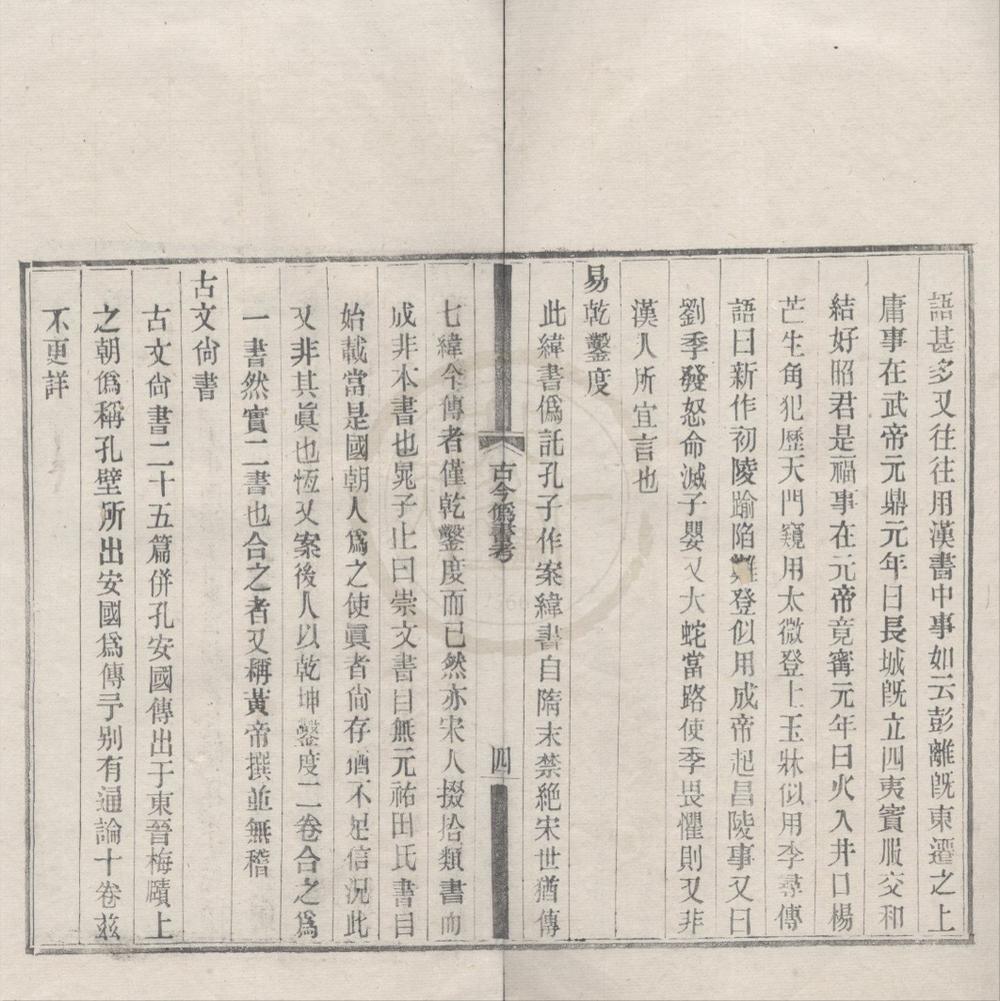 語甚多又往往用漢書中事如云彭離旣東遷之上
庸事在武帝元鼎元年曰長城旣立四夷賓服交和
結好昭君是福事在元帝竟寧元年曰火入井口楊
芒生角犯歷天門窺用太微登上玉牀似用李尋傳
語曰新作初陵踰陷難登似用成帝起昌陵事又曰
劉季發怒命滅子嬰又大蛇當路使季畏懼則又非
漢人所宜言也
易乾鑿度
此緯書僞託孔子作案緯書自隋末禁絶宋世猶傳
古今僞書考
四
七緯今傳者僅乾鑿度而已然亦宋人掇拾類書而
成非本書也晁子止曰崇文書目無元祐田氏書目
始載當是國朝人爲之使眞者尙存猶不足信況此
又非其眞也恆又案後人以乾坤鑿度二卷合之爲
一書然實二書也合之者又稱黃帝撰並無稽
古文尙書
古文尙書二十五篇併孔安國傳出于東晉梅賾上
之朝僞稱孔壁所出安國爲傳予别有通論十卷茲
不更詳